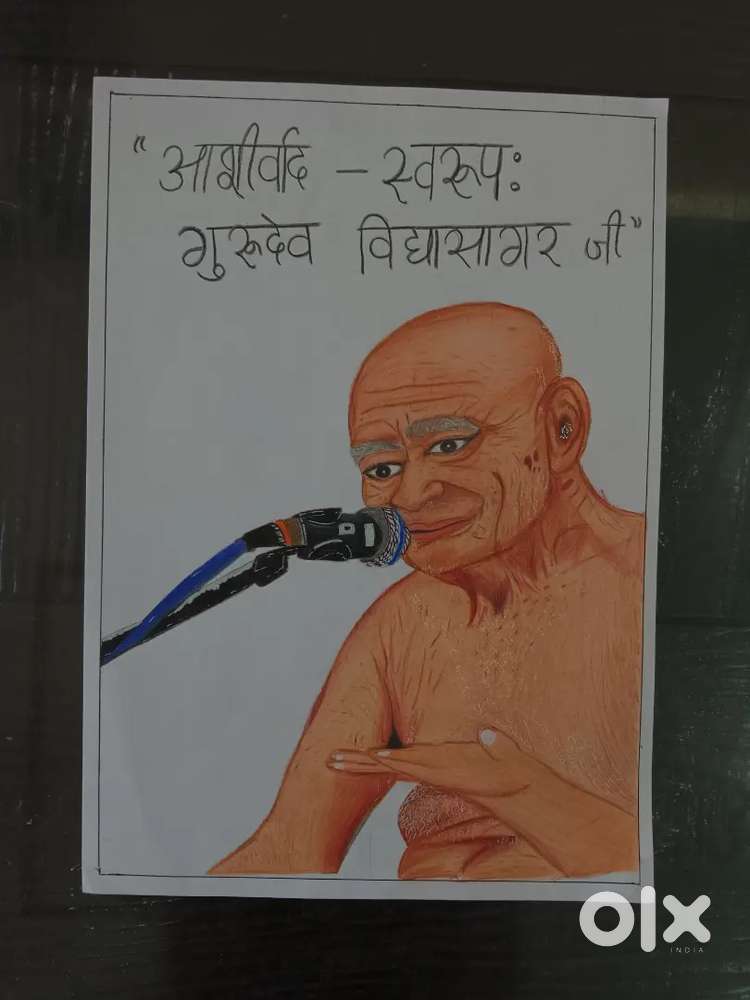 "आशीर्वाद - स्वरूप:
गुरूदेव विद्यासागर जी"
olx
INDIA